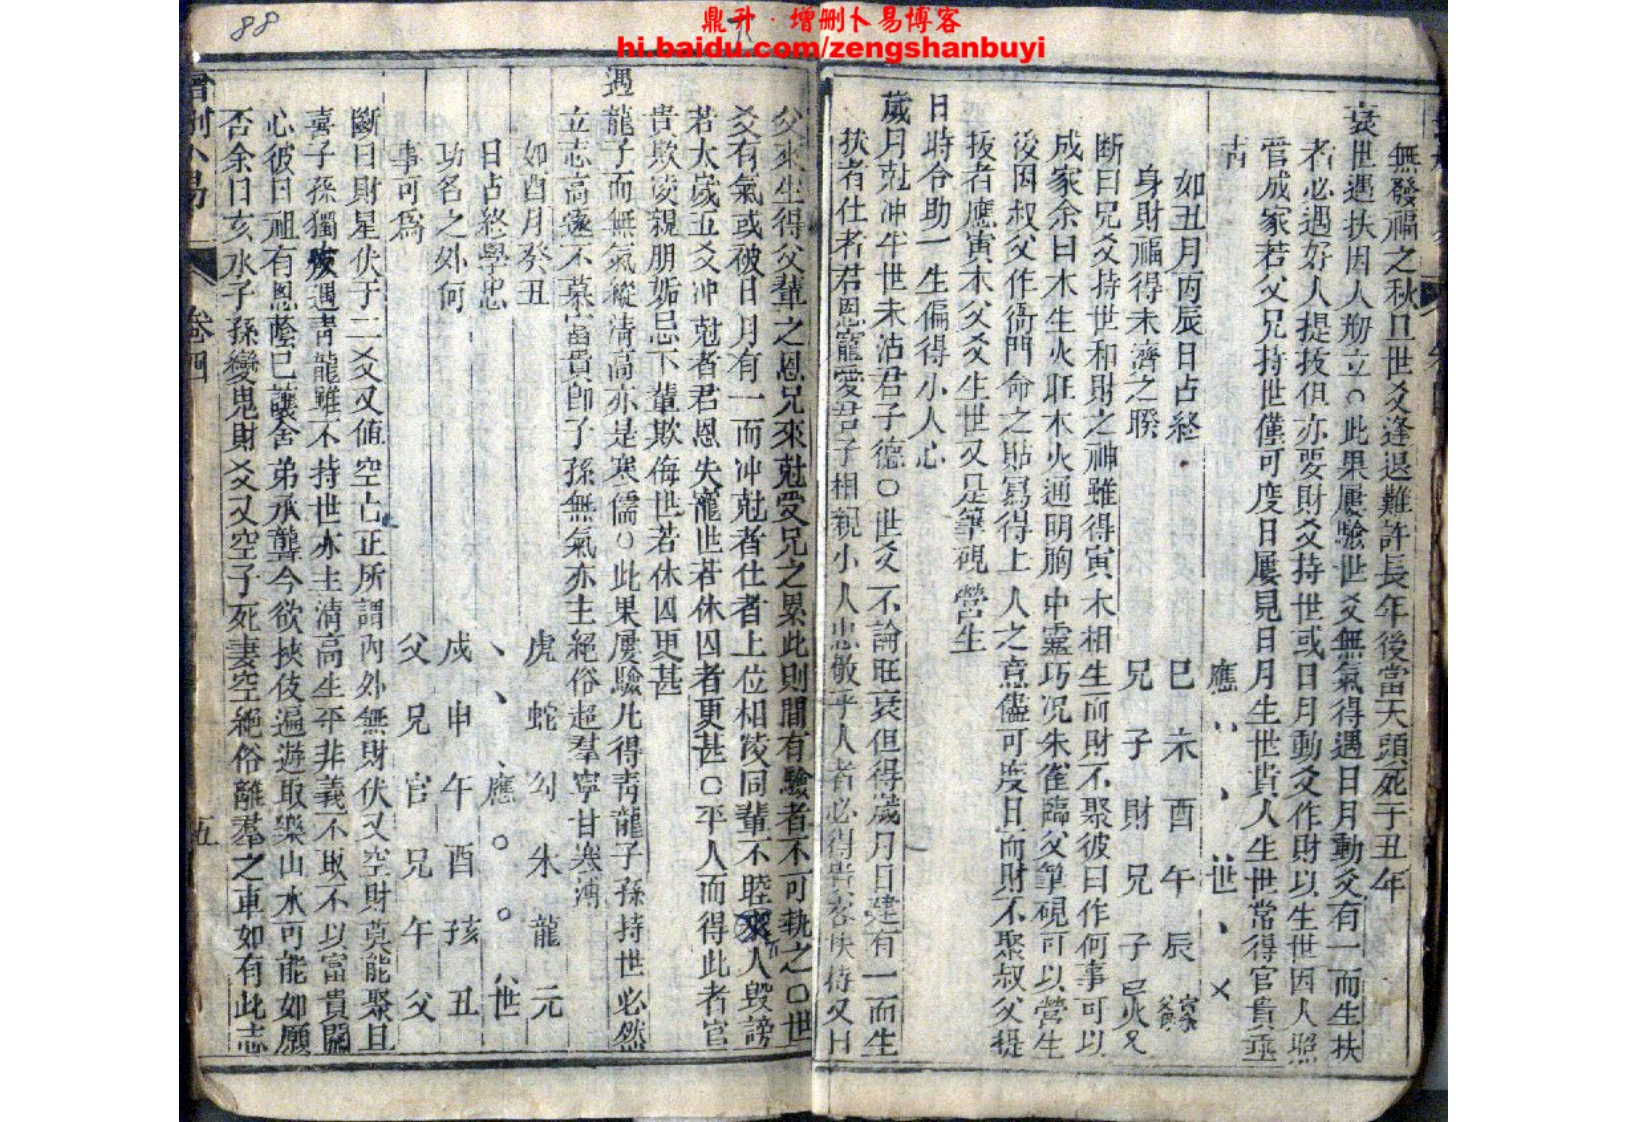 88
鼎升·增删卜易博客
hi.baidu.com/zengshanbuyi
無發福之秋且世爻逢退難許長年後當天頭死于丑年
衰世遇扶因人刱立○此果屢驗世爻無氣得遇日月動爻有一而生扶
者必遇好人提拔但亦要財爻持世或日月動爻作財以生世因人照
管成家若父兄持世僅可度日屢見日月生世貴人生世常得官貴垂
青
應 世
如丑月丙辰日占終 巳 未 酉 午 辰 寅
身財福得未濟之睽 兄 子 財 兄 子 巳火兄
断曰兄爻持世和財之神雖得寅木相生而財不聚彼曰作何事可以
成家余曰木生火旺木火通明胸中靈巧况朱雀臨父筆硯可以營生
後因叔父作衙門命之貼寫得上人之意儘可度日而財不聚叔父提
拔者應寅木父爻生世又是筆硯營生
日時合助一生偏得小人心
歲月尅冲半世未沾君子德○世爻不論旺衰但得歲月日建有一而生
扶者仕者君恩寵愛君子相親小人忠敬乎人者必得貴客扶持又日
父來生得父輩之恩兄來尅受兄之累此則間有驗者不可執之○世
爻有氣或被日月有一而冲尅者仕者上位相陵同輩不睦人毀謗
若太歲五爻冲尅者君恩失寵世若休囚者更甚○平人而得此者官
貴欺凌親朋妬忌下輩欺侮世若休囚更甚
遇龍子而無氣縱清高亦是寒儒○此果屢驗凡得青龍子孫持世必然
立志高遠不慕富貴卽子孫無氣亦主絕俗超羣寧甘寒薄
如酉月癸丑 虎 蛇 勾 朱 龍 元
日占終學忠 、 、 、應 ○ ○ 世
功名之外何 戌 申 午 酉 亥 丑
事可爲 父 兄 官 兄 午 父
斷曰財星伏于二爻又値空亡正所謂內外無財伏又空財莫能聚且
喜子孫獨發遇靑龍雖不持世亦主淸高生平非義不取不以富貴關
心彼曰祖有恩蔭已讓舍弟承襲今欲挾伎遍遊取樂山水可能如願
否余曰亥水子孫變鬼財爻又空子死妻空絕俗離羣之車如有此志
增刪卜易 卷四 五